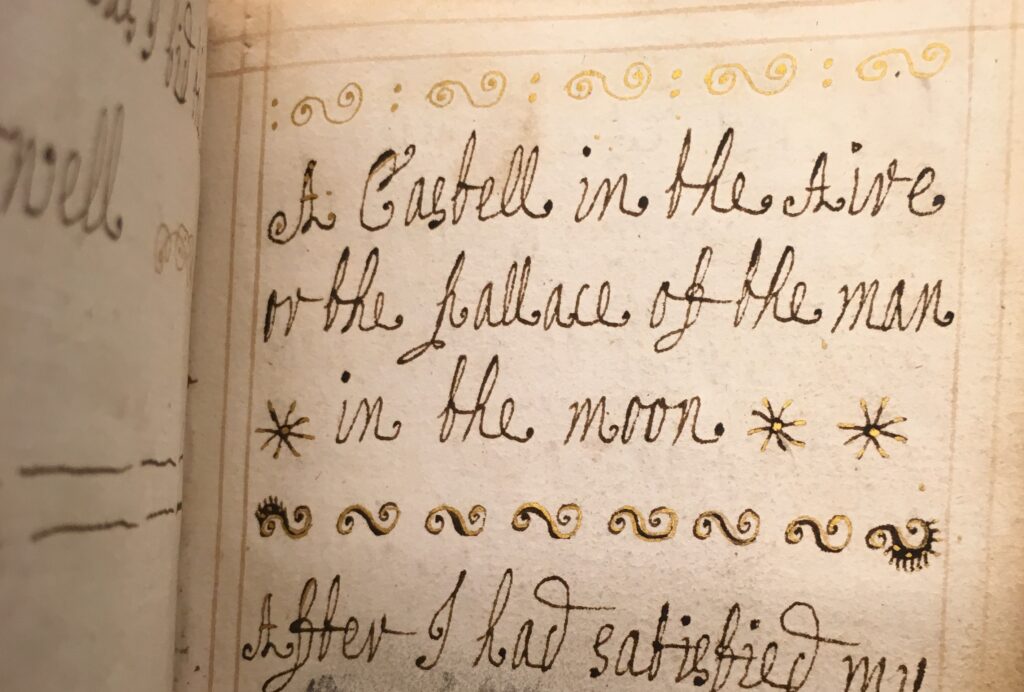 well
A Castell in the Aire
or the pallace of the man
in the moon.
After I had satisfied my